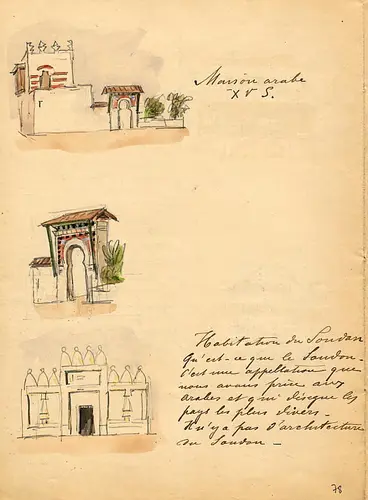 Maison arabe
XV S.
Habitation du Soudan
Qu'est-ce que le Soudan.
C'est une appellation que
nous avons prise aux
arabes et qui désigne les
pays les plus divers.
Il n'y a pas d'architecture
du Soudan.
78